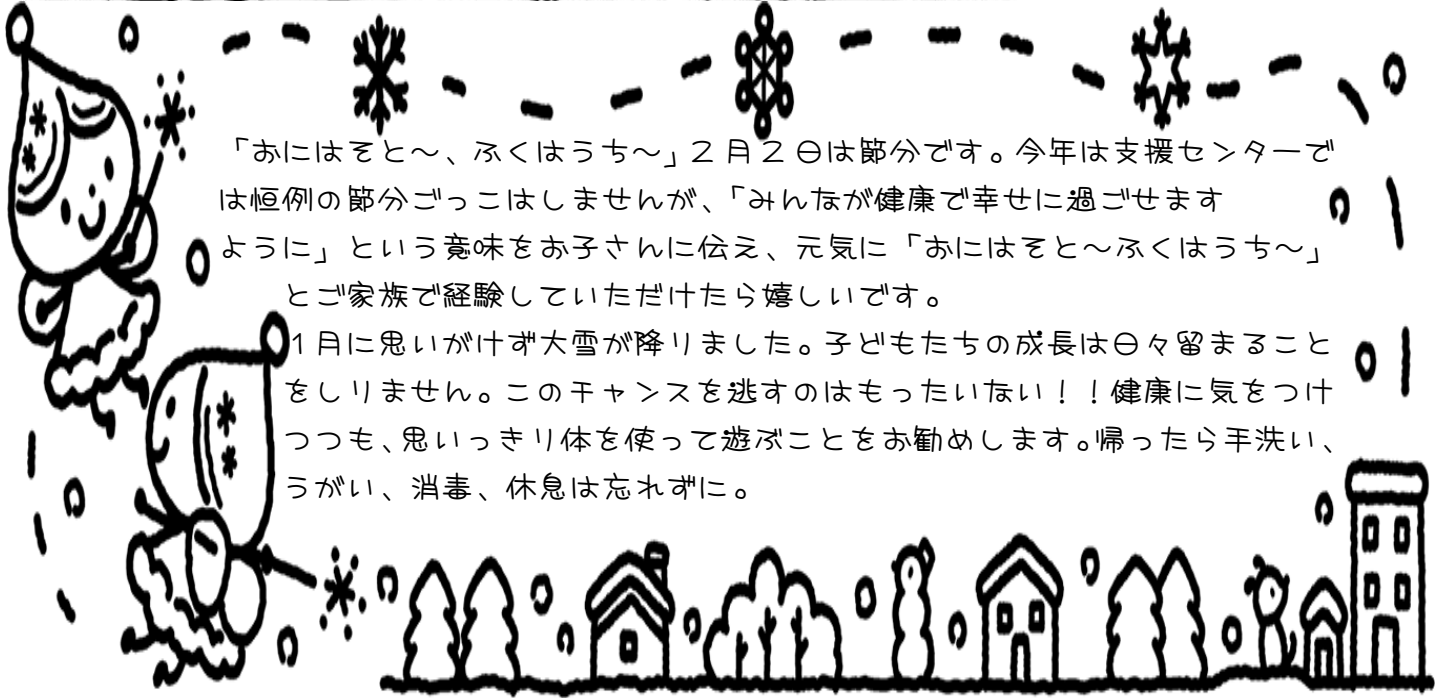 「おにはそと～、ふくはうち～」２月２日は節分です。今年は支援センターで
は恒例の節分ごっこはしませんが、「みんなが健康で幸せに過ごせます
ように」という意味をお子さんに伝え、元気に「おにはそと～ふくはうち～」
とご家族で経験していただけたら嬉しいです。
１月に思いがけず大雪が降りました。子どもたちの成長は日々留まること
をしりません。このチャンスを逃すのはもったいない！！健康に気をつけ
つつも、思いっきり体を使って遊ぶことをお勧めします。帰ったら手洗い、
うがい、消毒、休息は忘れずに。